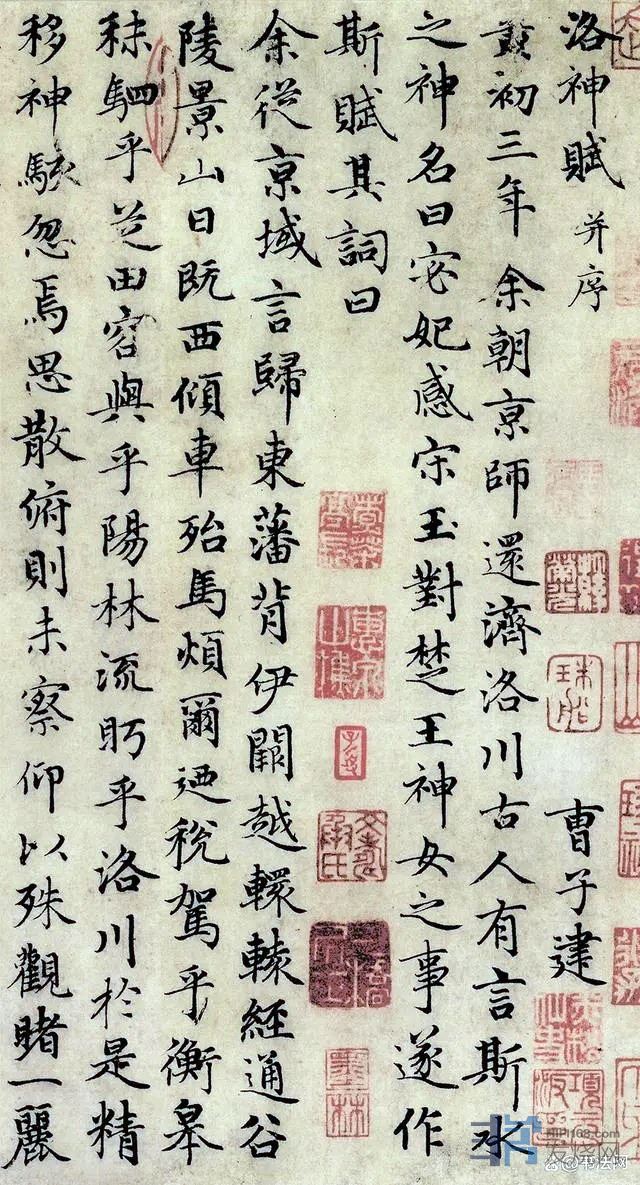 洛神賦 并序 曹子建
黄初三年余朝京師還濟洛川古人有言斯水
之神名曰宓妃感宋玉對楚王神女之事遂作
斯賦其詞曰
余從京域言歸東藩背伊闕越轘轅經通谷
陵景山日既西傾車殆馬煩爾迺稅駕乎衡皋
秣駟乎芝田容與乎陽林流眄乎洛川於是精
移神駭忽焉思散俯則未察仰以殊觀睹一麗
书法网